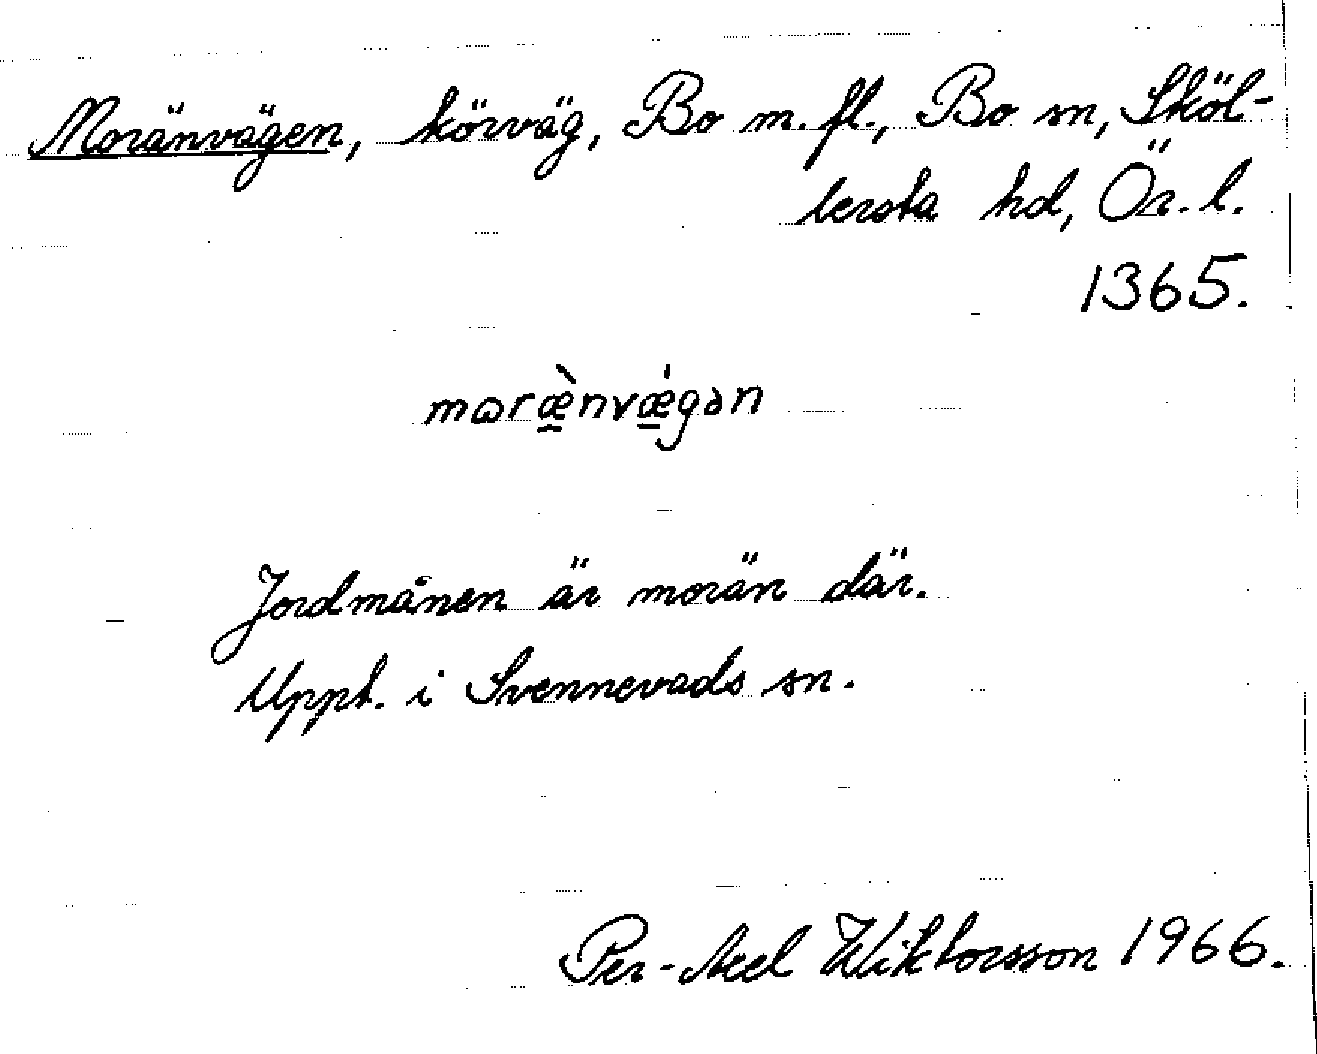 Moränvägen, körväg, Bo m. fl., Bo sn, Sköl-
lersta hd, Ör. l.
1365.
maræ̀nvǽgən
Jordmånen är morän där.
Uppt. i Svennevads sn.
Per-Axel Wiktorsson 1966.